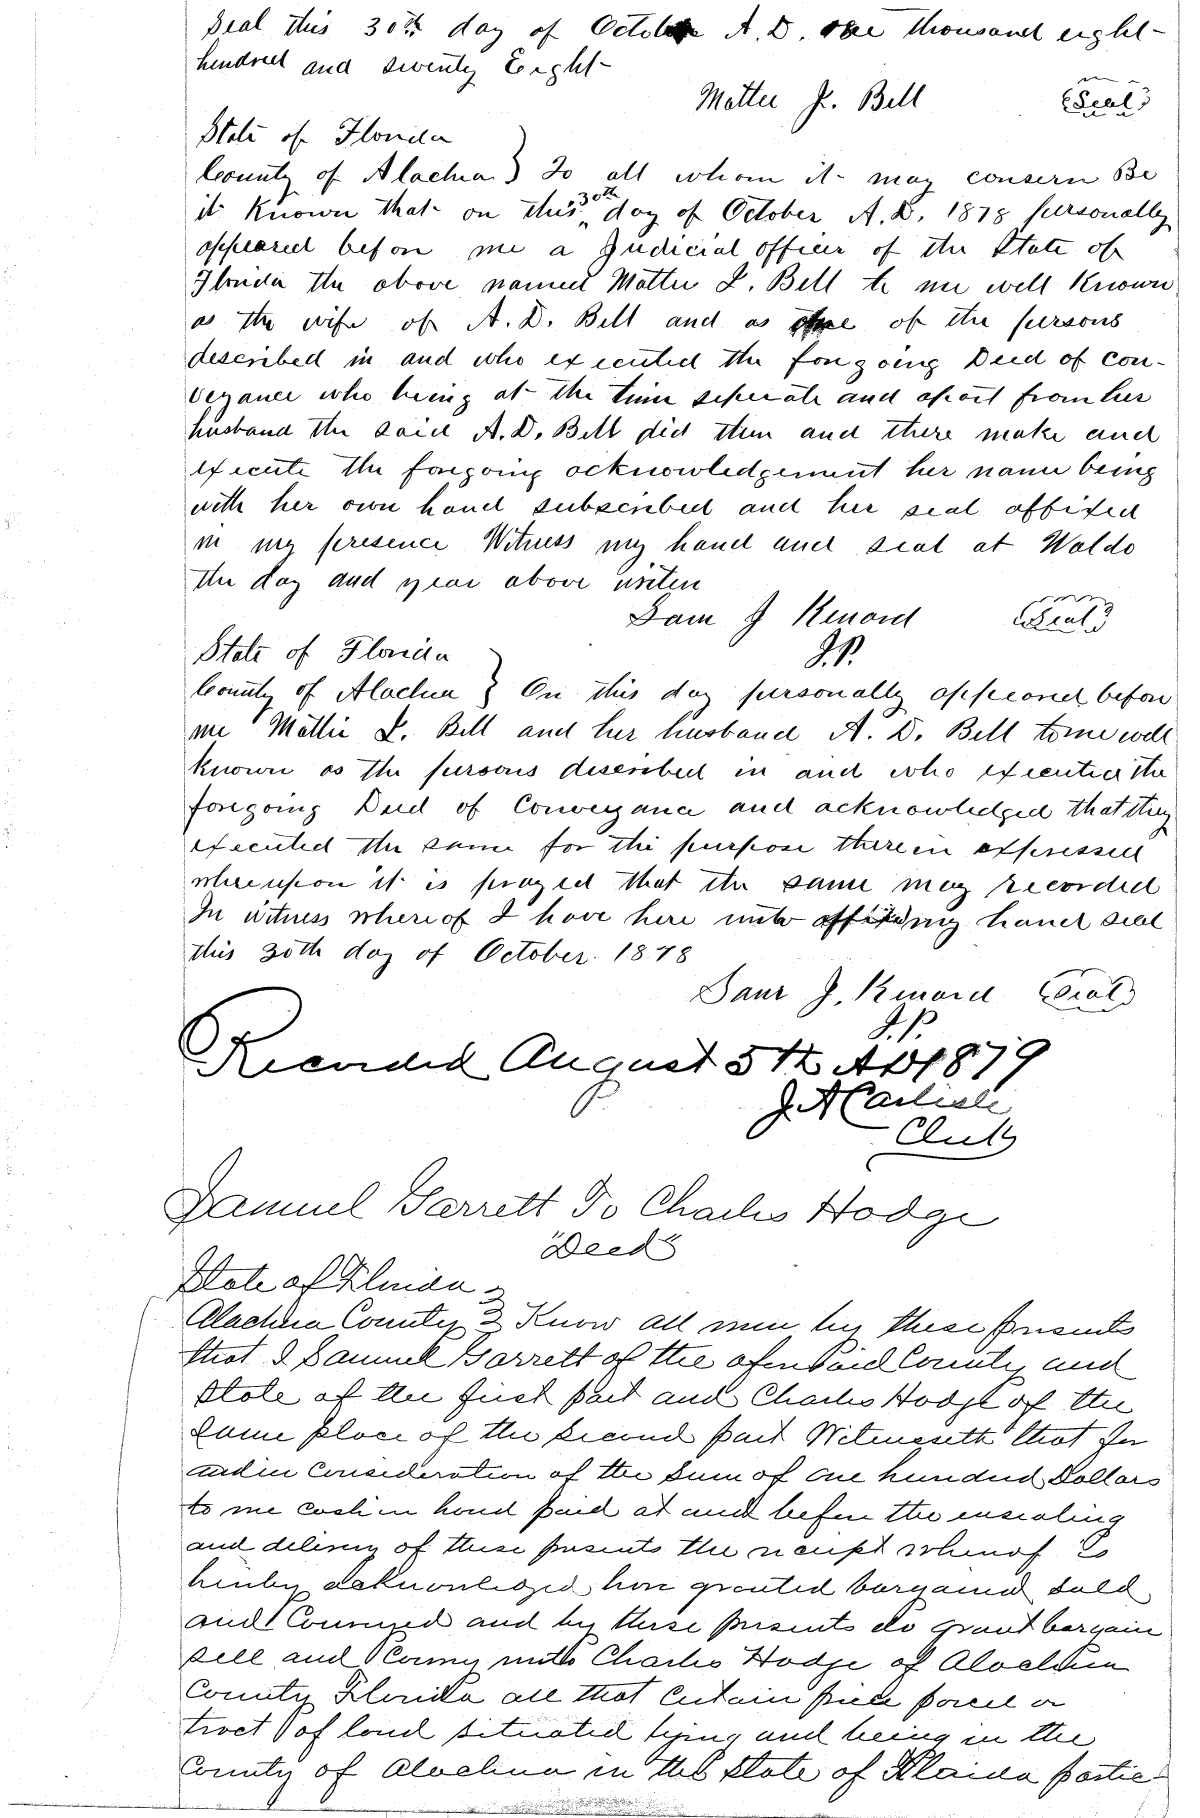 Seal this 30th day of October A. D. one thousand eight-
hundred and seventy Eight-
Mattie J. Bell (Seal)
State of Florida
County of Alachua } To all whom it may consern Be
it Known that on this 30th day of October A. D. 1878 personally
appeared before me a Judicial officer of the State of
Florida the above named Mattie L. Bell to me well Known
as the wife of A. D. Bell and as one of the persons
described in and who executed the foregoing Deed of con-
veyance who being at the time seperate and apart from her
husband the said A. D. Bell did then and there make and
execute the foregoing acknowledgement her name being
with her own hand subscribed and her seal affixed
in my presence Witness my hand and seal at Waldo
the day and year above writen
Sam J Kenard (Seal)
J.P.
State of Florida
County of Alachua } On this day personally appeared before
me Mattie L. Bell and her husband A. D. Bell to me well
Known as the persons described in and who executed the
foregoing Deed of Conveyance and acknowledged that they
executed the same for the purpose therein expressed
whereupon it is prayed that the same may recorded
In witness whereof I have here unto affixed my hand seal
this 30th day of October 1878
Sam J. Kenard (Seal)
J.P.
Recorded August 5th AD 1879
J A Carlisle
Clerk
Samuel Garrett To Charles Hodge
"Deed"
State of Florida
Alachua County } Know all men by these presents
that I Samuel Garrett of the aforesaid County and
State of the first part and Charles Hodge of the
same place of the second part Witnesseth that for
and in consideration of the sum of one hundred Dollars
to me cash in hand paid at and before the ensealing
and delivery of these presents the receipt whereof is
hereby acknowledged have granted bargained sold
and Conveyed and by these presents do grant bargain
sell and Convey unto Charles Hodge of Alachua
County Florida all that certain piece parcel or
tract of land situated lying and being in the
County of Alachua in the State of Florida partic-